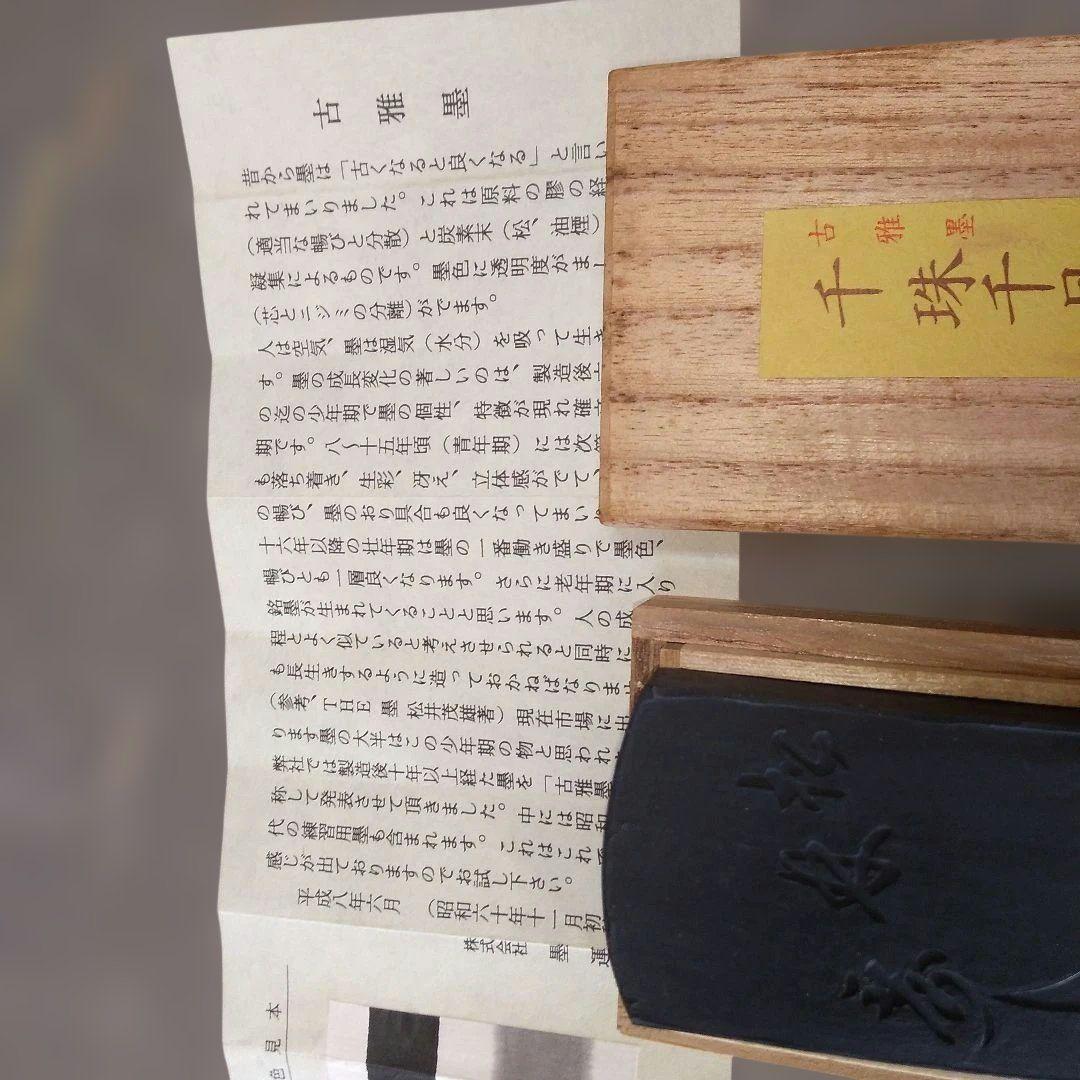 古雅墨
昔から墨は「古くなると良くなる」と言い
れてまいりました。これは原料の膠の経
(適当な暢びと分散)と炭素末(松、油煙)
凝集によるものです。墨色に透明度がまし
(芯とニジミの分離)がでます。
人は空気、墨は湿気(水分)を吸って生き
す。墨の成長変化の著しいのは、製造後
の迄の少年期で墨の個性、特徴が現れ確
期です。八〜十五年頃(青年期)には次第
も落ち着き、生彩、冴え、立体感がでて、
の暢び、墨のおり具合も良くなってまい
十六年以降の壮年期は墨の一番働き盛りで墨色、
暢びとも一層良くなります。さらに老年期に入り
銘墨が生まれてくることと思います。人の成
程とよく似ていると考えさせられると同時に
も長生きするように造っておかねばなりませ
(参考、THE墨 松井茂雄著)現在市場に出
ります墨の大半はこの少年期の物と思われ
弊社では製造後十年以上経た墨を「古雅墨
称して発表させて頂きました。中には昭和
代の練習用墨も含まれます。これはこれで
感じが出ておりますのでお試し下さい。
平成八年六月 (昭和六十年十一月初
株式会社 墨運
色見本
古雅墨
千珠千